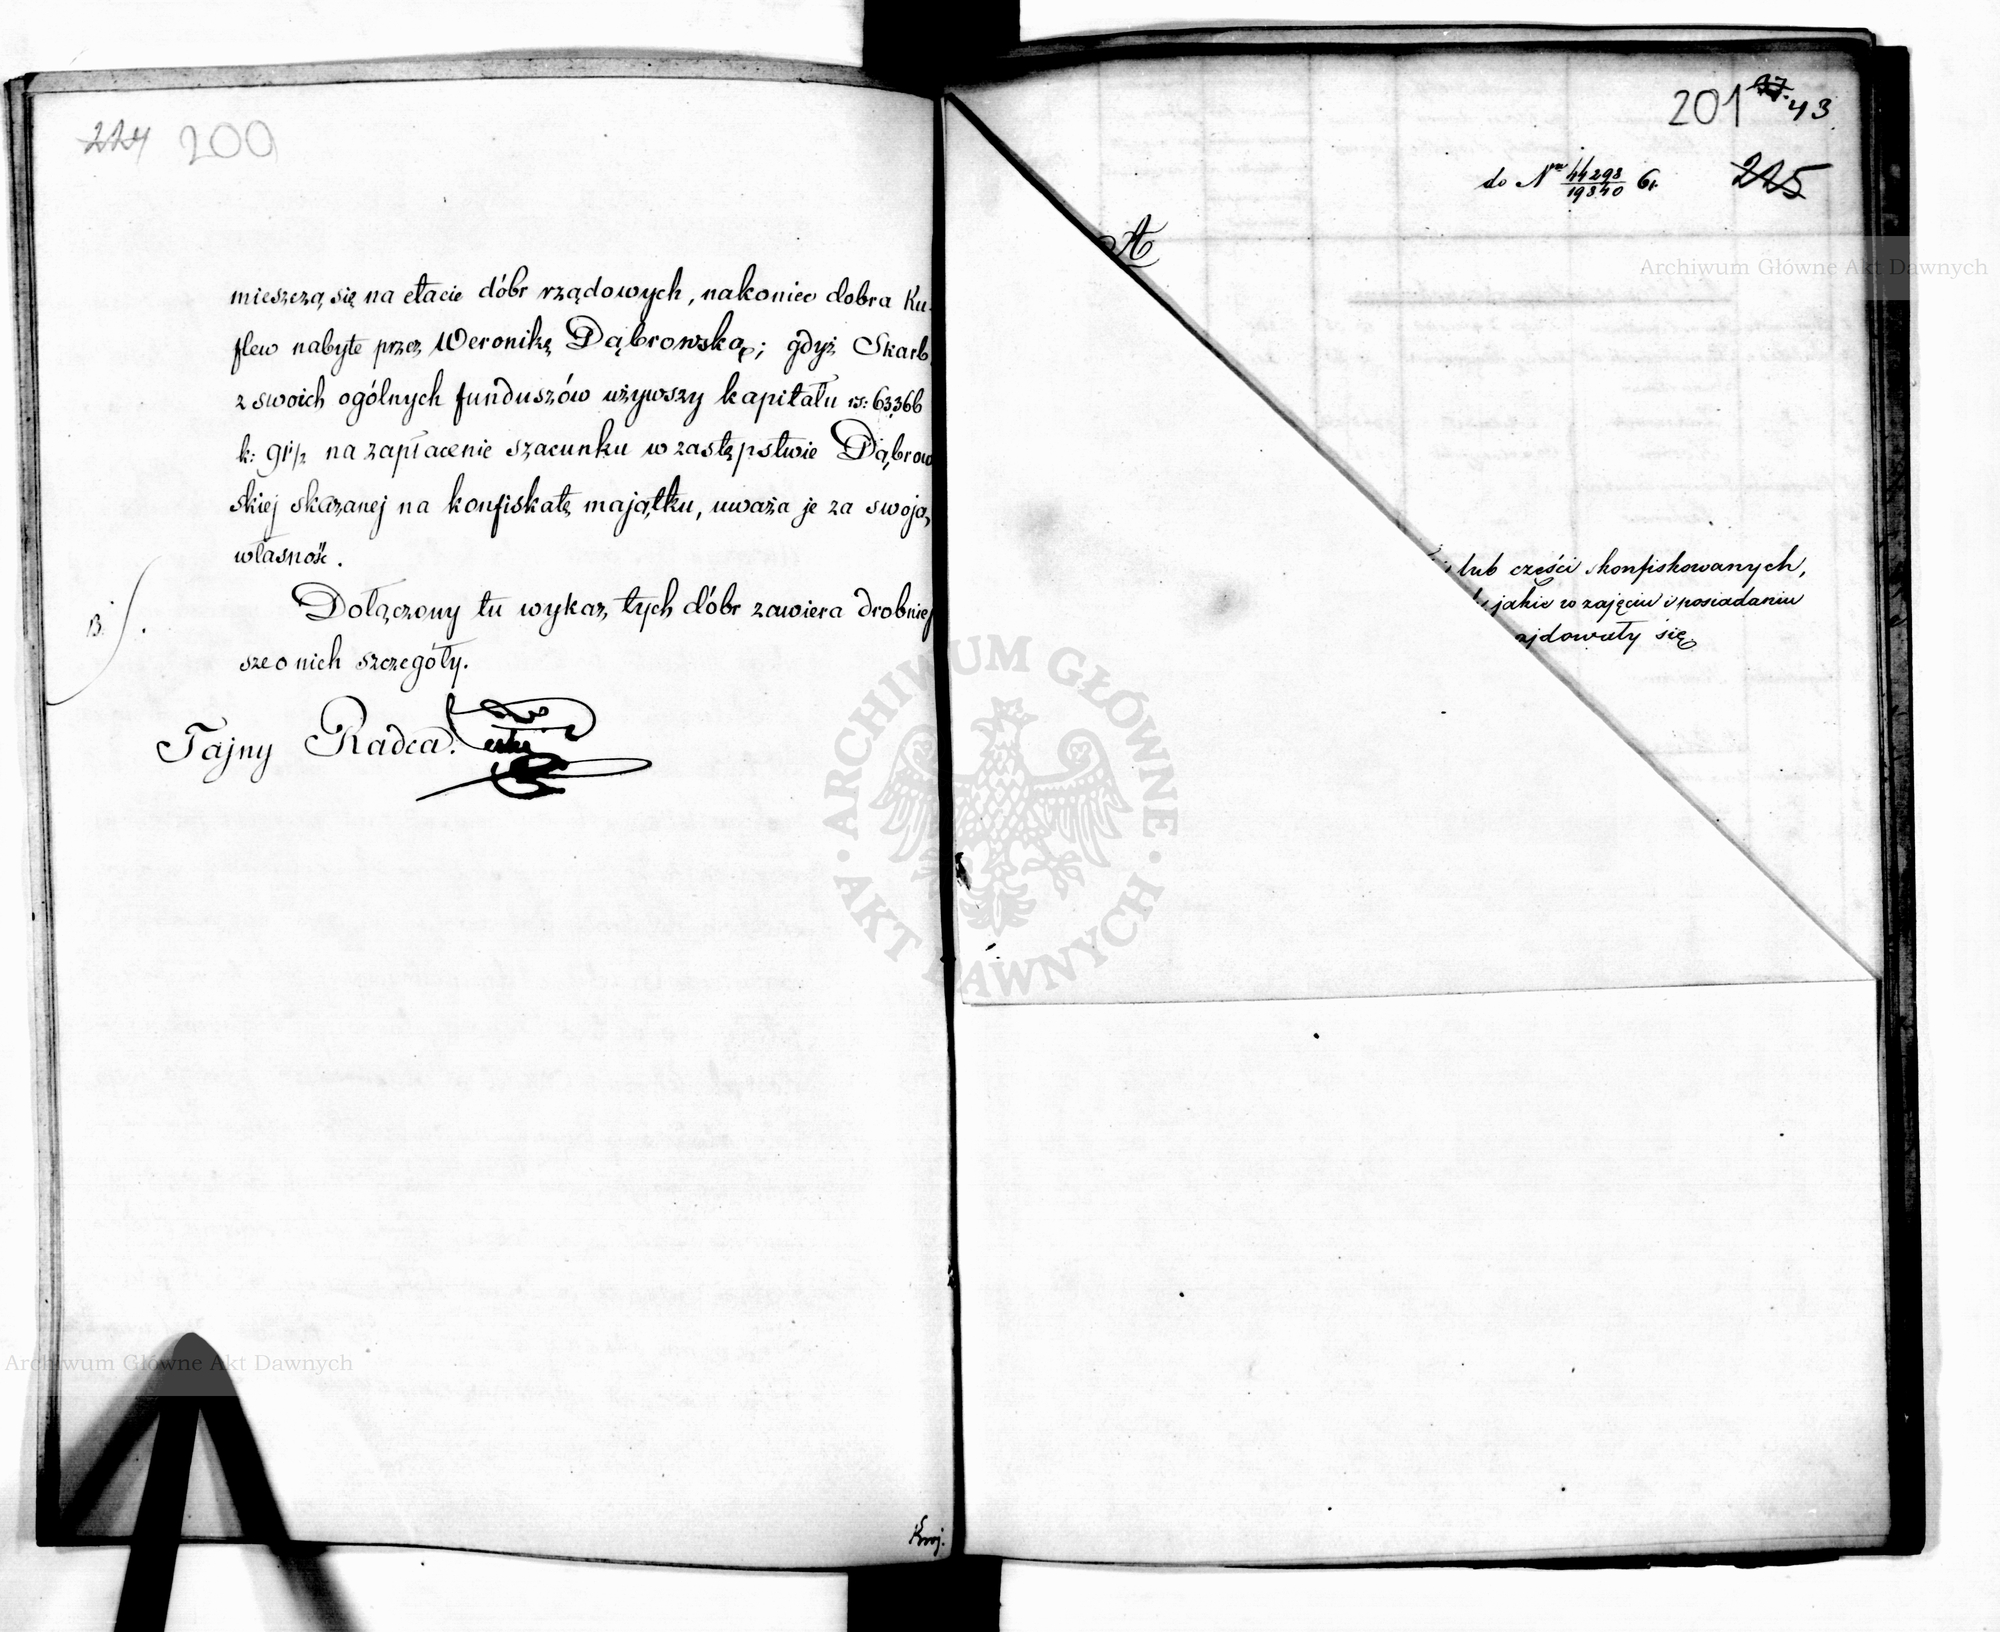 224 200
mieszczą się na etacie dóbr rządowych, nakoniec dobra Ku-
flew nabyte przez Weronikę Dąbrowską; gdyż Skarb
z swoich ogólnych funduszów używszy kapitału rs: 63,366
k: 91 1/2 na zapłacenie szacunku w zastępstwie Dąbrow
skiej skazanej na konfiskatę majątku, uważa je za swoją
własność.
B.
Dołączony tu wykaz tych dóbr zawiera drobniej
sze o nich szczegóły.
Tajny Radca.
201 43
do Nru 44298/19840 225
A
lub części skonfiskowanych,
jakie w zajęciu i posiadaniu
ajdowały się
Archiwum Główne Akt Dawnych
ARCHIWUM GŁÓWNE AKT DAWNYCH
Archiwum Główne Akt Dawnych